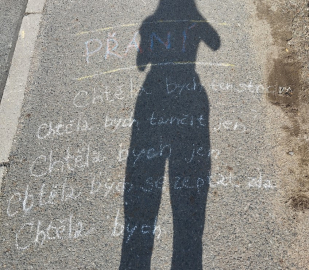 PŘÁNÍ
Chtěla bych ten strom
Chtěla bych tančit jen
Chtěla bych jen
Chtěla bych se zeptat zda
Chtěla bych